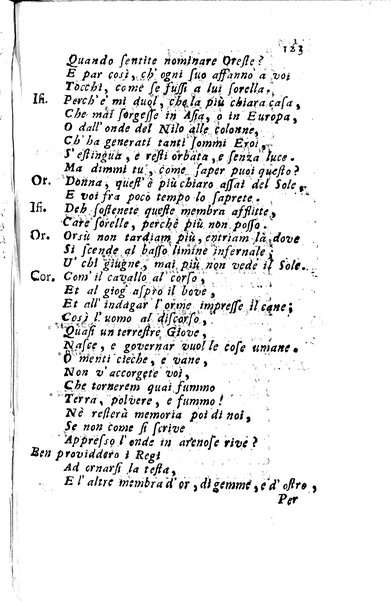 123
Quando sentite nominare Oreste?
E par così, ch'ogni suo affanno a voi
Tocchi, come se fussi a lui sorella.
Ifi. Perch'e' mi duol, che la più chiara casa,
Che mai sorgesse in Asia, o in Europa,
O dall'onde del Nilo alle colonne,
Ch'ha generati tanti sommi Eroi,
S'estingua, e resti orbata, e senza luce.
Ma dimmi tu, come saper puoi questo?
Or. Donna, quest'è più chiaro assai del Sole,
E voi fra poco tempo lo saprete.
Ifi. Deh sostenete queste membra afflitte,
Care sorelle, perchè più non posso.
Or. Orsù non tardiam più, entriam là dove
Si scende al basso limine infernale;
U' chi giugne, mai più non vede il Sole.
Cor. Com'il cavallo al corso,
Et al giog aspro il bove,
Et all'indagar l'orme impresse il cane;
Così l'uomo al discorso,
Quasi un terrestre Giove,
Nasce, e governar vuol le cose umane.
O menti cieche, e vane,
Non v'accorgete voi,
Che tornerem quai fummo
Terra, polvere, e fummo!
Nè resterà memoria poi di noi,
Se non come si scrive
Appresso l'onde in arenose rive?
Ben providdero i Regi
Ad ornarsi la testa,
E l'altre membra d'or, di gemme, e d'ostro,
Per